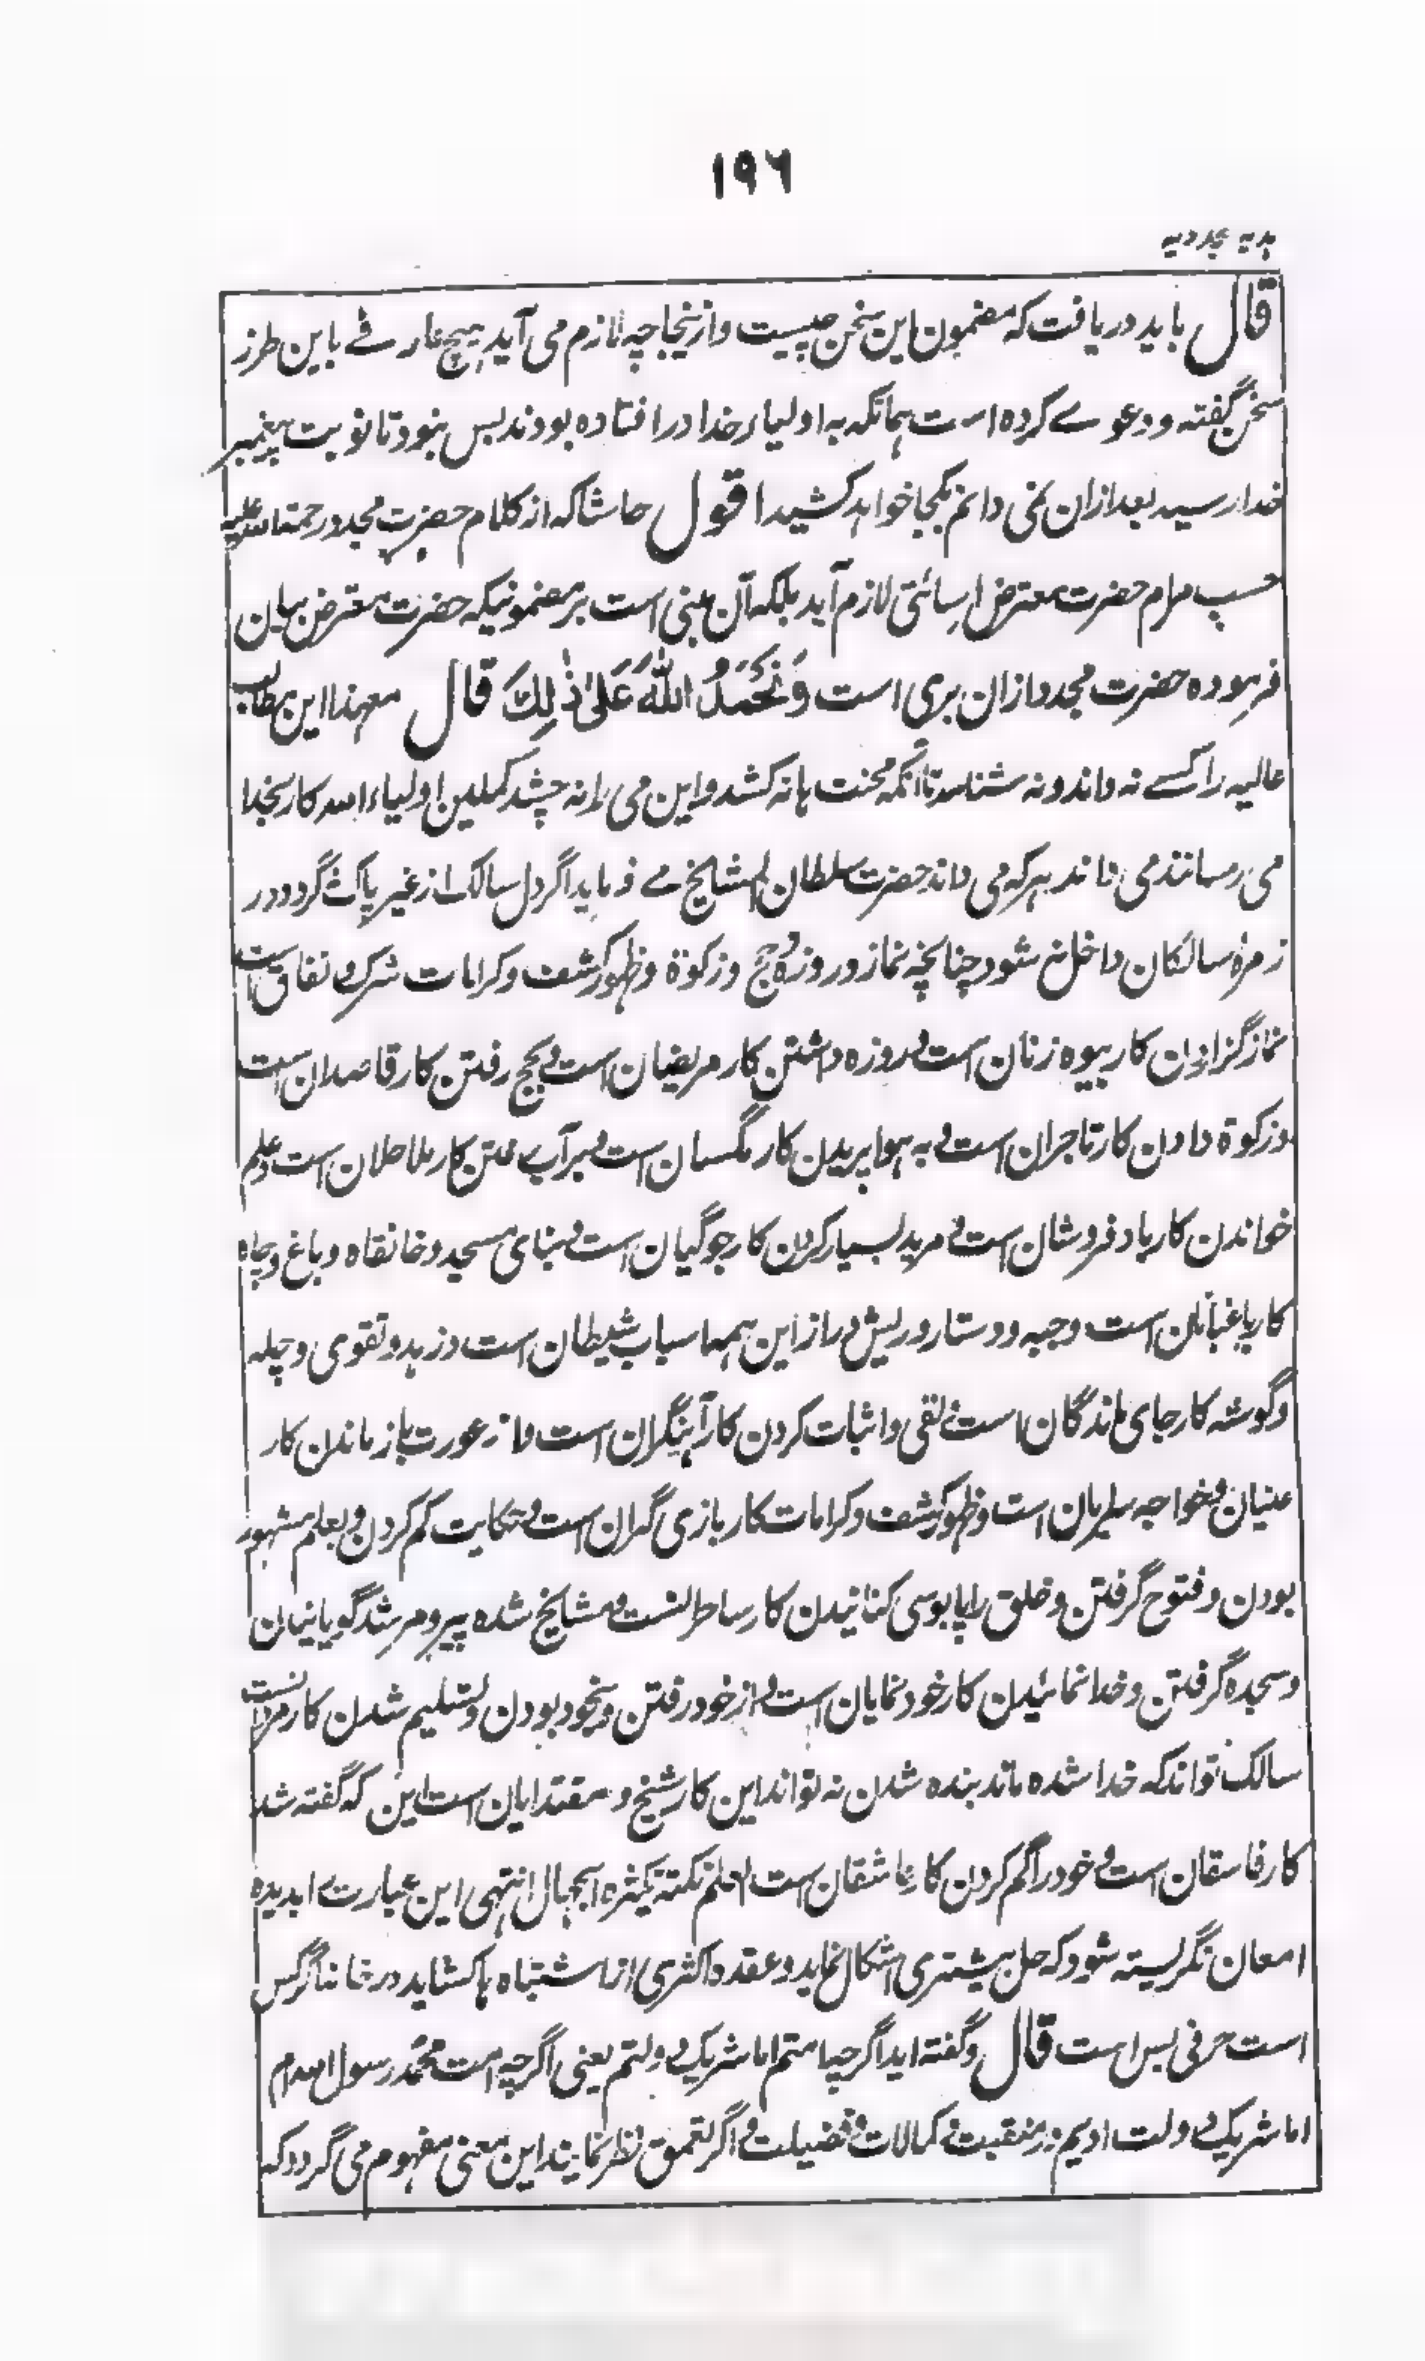 ١٩٦
هدیه مجددیه
قال باید دریافت که مضمون این سخن چیست و ازینجا چه لازم می آید هیچ عارفے باین طرز
سخن گفته و دعوے کرده است همانکه به اولیاء خدا در افتاده بودند بس نبود تا نوبت پیغمبر
خدا رسید بعد ازان نمی دانم بکجا خواهد کشید اقول حاشا که از کلام حضرت مجدد رحمة الله علیه
حسب مرام حضرت معترض اسائتی لازم آید بلکه آن مبنی است بر مضمونیکه حضرت معترض بیان
فرموده حضرت مجدد ازان بری است وَنَحْمَدُ اللّٰهَ عَلىٰ ذٰلِكَ قال معهذا این مطالب
عالیه را کسے نه داند و نه شناسد تا آنکه محنت ها نه کشد و این می را نه چشد کملین اولیاء الله کار بخدا
می رسانند می داند هر که می داند حضرت سلطان المشایخ مے فرماید اگر دل سالک از غیر پاک نگردد در
زمرهٔ سالکان داخل نه شود چنانچه نماز و روزه و حج و زکوة و ظهور کشف و کرامات شرک و نفاق است
نماز گزاردن کار بیوه زنان است و روزه داشتن کار مریضان است و بحج رفتن کار قاصدان است
و زکوة دادن کار تاجران است و به هوا پریدن کار مگسان است و بر آب رفتن کار ملاحان است و علم
خواندن کار باد فروشان است و مرید بسیار کردن کار جوگیان است و بنای مسجد و خانقاه و باغ و چاه
کار باغبانان است و جبه و دستار و ریش دراز این همه اسباب شیطان است و زهد و تقوی و چله
و گوشه کار جای ماندگان است و نفی و اثبات کردن کار آهنگران است و از عورت باز ماندن کار
عنینان و خواجه سرایان است و ظهور کشف و کرامات کار بازی گران است و حکایت کم کردن و بعلم مشهور
بودن و فتوح گرفتن و خلق را پابوسی کنانیدن کار ساحرانست و مشایخ شده پیر و مرشد گویانیدن
و سجده گرفتن و خدا نمائیدن کار خود نمایان است و از خود رفتن و بیخود بودن و تسلیم شدن کار مردانست
سالک تواند که خدا شده ماند بنده شدن نه تواند این کار شیخ و مقتدایان است این که گفته شد
کار فاسقان است و خود را گم کردن کار عاشقان است العلم نکتة کثره الجهال انتهی این عبارت را بدیده
امعان نگریسته شود که حل بیشتری اشکال نماید و عقده اکثری از اشتباه ها کشاید در خانه اگر کس
است حرفی بس است قال و گفته اید اگرچه امتم اما شریک دولتم یعنی اگرچه امت محمد رسول الله ام
اما شریک دولت اویم در منقبت و کمالات و فضیلت و اگر بتعمق نظر نمایند این معنی مفهوم می گردد که